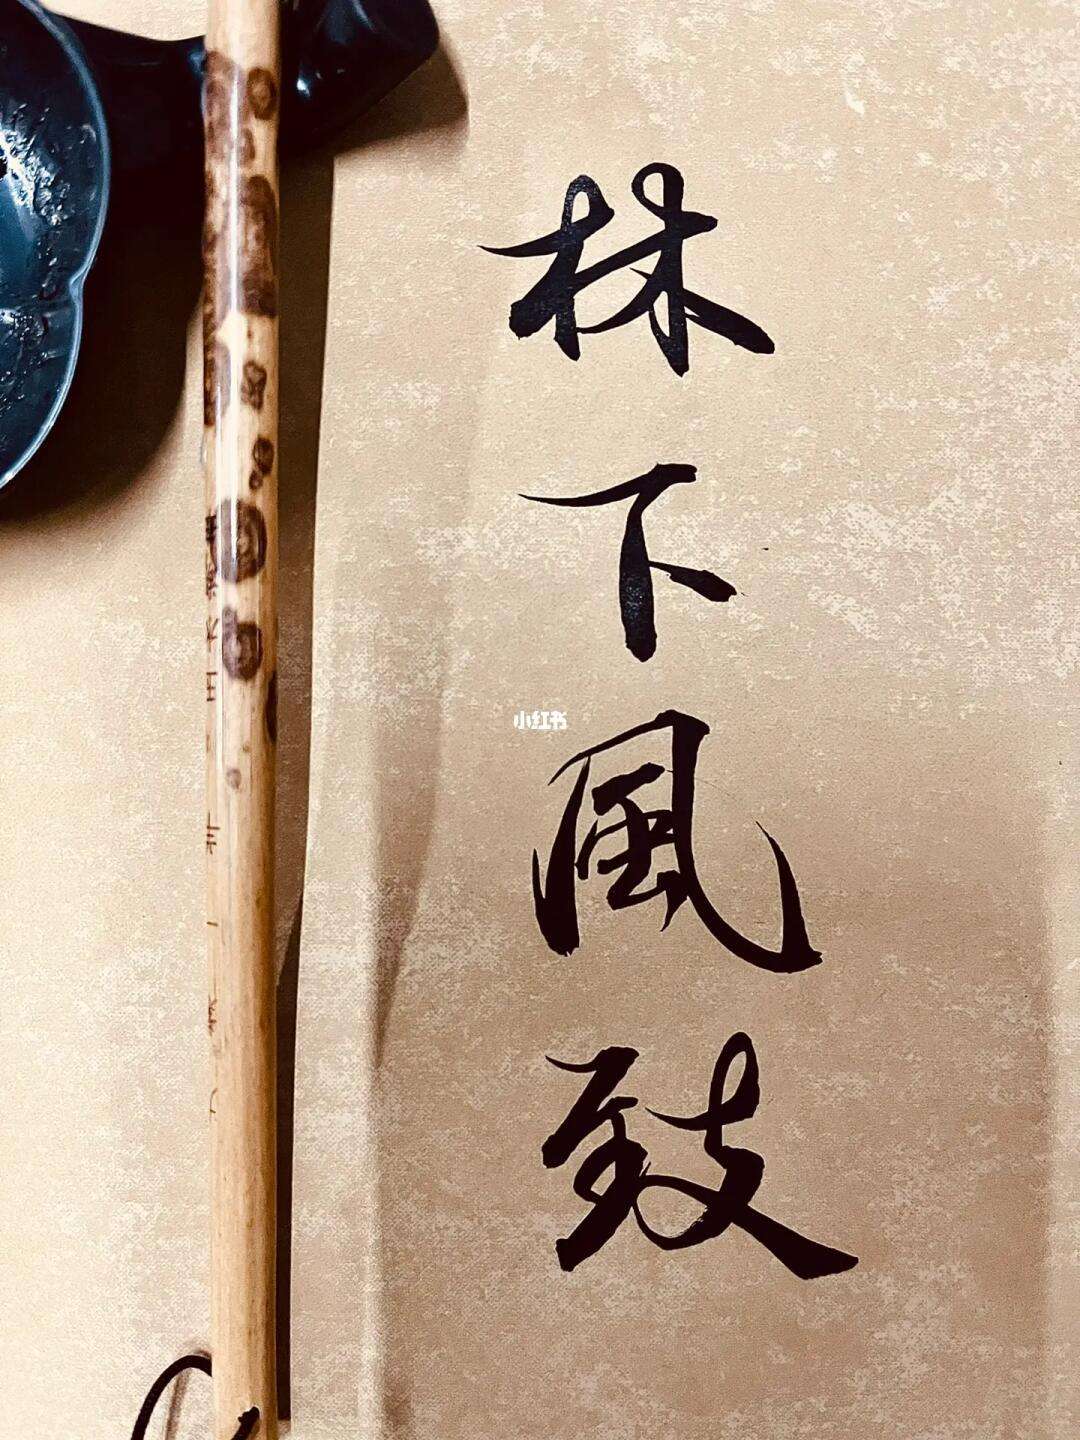 林下風致
小红书